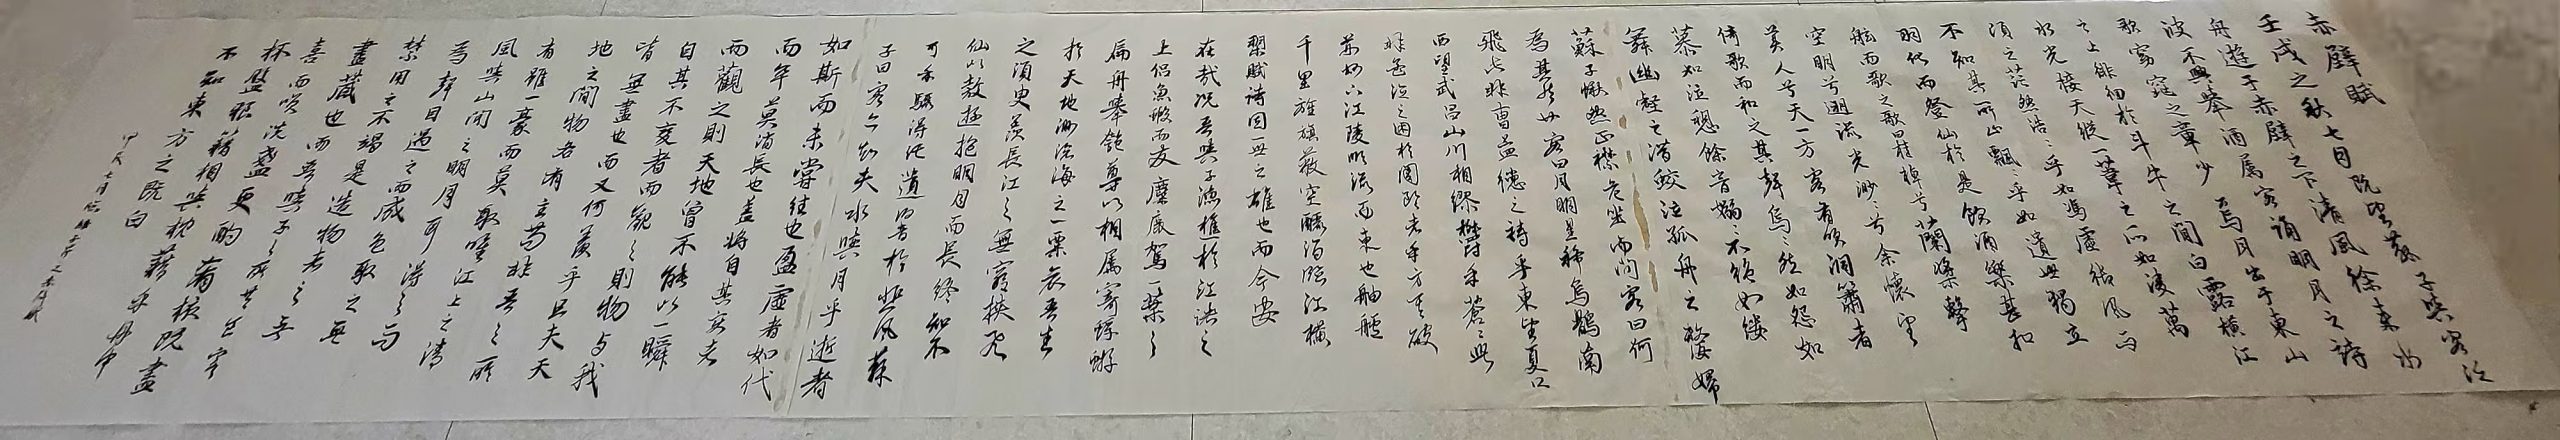 赤壁賦
壬戌之秋七月既望蘇子與客泛
舟遊于赤壁之下清風徐來水
波不興舉酒属客誦明月之詩
歌窈窕之章少焉月出于東山
之上徘徊於斗牛之間白露橫江
水光接天縱一葦之所如淩萬
頃之茫然浩〻乎如馮虛御風而
不知其所止飄〻乎如遺世獨立
羽化而登仙於是飲酒樂甚扣
舷而歌之歌曰桂棹兮蘭槳擊
空明兮泝流光渺〻兮余懷望
美人兮天一方客有吹洞簫者
倚歌而和之其聲烏〻然如怨如
慕如泣如訴餘音嫋〻不絕如縷
舞幽壑之潛蛟泣孤舟之嫠婦
蘇子愀然正襟危坐而問客曰何
為其然也客曰月明星稀烏鵲南
飛此非曹孟德之詩乎東望夏口
西望武昌山川相繆鬱乎蒼〻此
非孟德之困於周郎者乎方其破
荊州下江陵順流而東也舳艫
千里旌旗蔽空釃酒臨江橫
槊賦詩固一世之雄也而今安
在哉況吾與子漁樵於江渚之
上侣魚蝦而友麋鹿駕一葉之
扁舟舉匏尊以相属寄蜉蝣
於天地渺滄海之一粟哀吾生
之須臾羨長江之無窮挾飛
仙以遨遊抱明月而長終知不
可乎驟得托遺響於悲風蘇
子曰客亦知夫水與月乎逝者
如斯而未嘗往也盈虛者如代
而卒莫消長也盖將自其變者
而觀之則天地曾不能以一瞬
自其不變者而觀之則物與我
皆無盡也而又何羨乎且夫天
地之間物各有主苟非吾之所
有雖一毫而莫取唯江上之清
風與山間之明月耳得之而
為聲目遇之而成色取之無
禁用之不竭是造物者之無
盡藏也而吾與子之所共食客
喜而笑洗盞更酌肴核既盡
杯盤狼藉相與枕藉乎舟中
不知東方之既白